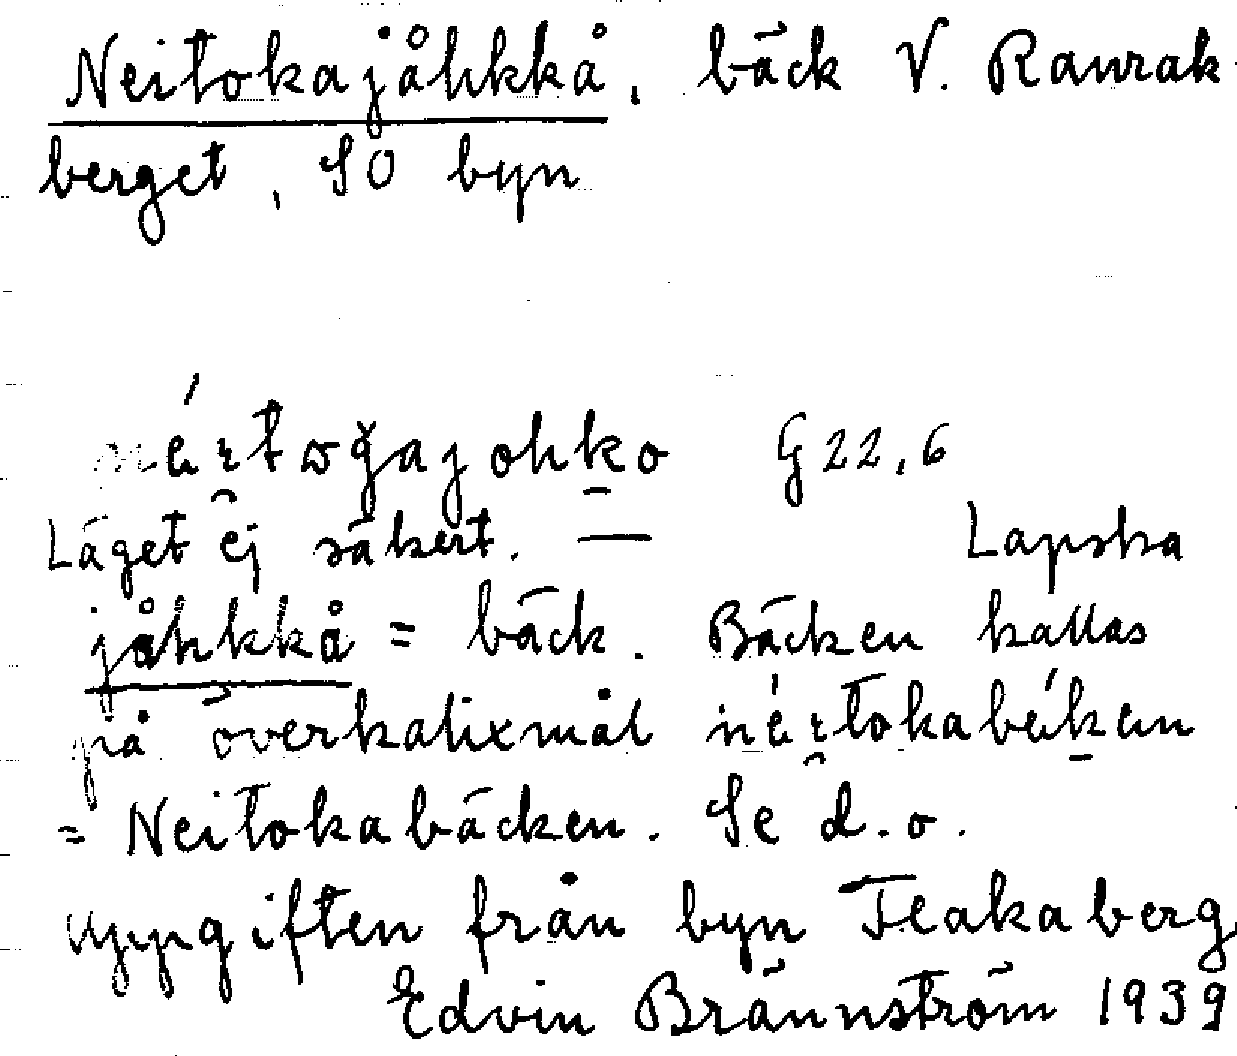 Neitokajåhkkå, bäck V. Ranrak
berget, SO byn
G 22,6
Läget ej säkert. — Lapska
jåhkkå = bäck. Bäcken kallas
på överkalixmål
= Neitokabäcken. Se d.o.
uppgiften från byn Teakaberg
Edvin Brännström 1939